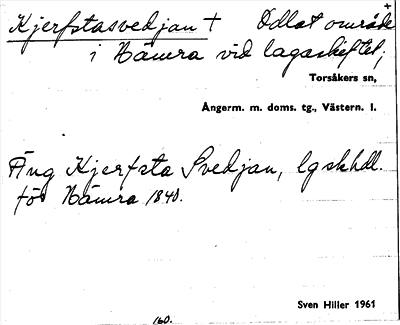 Kjerfstasvedjan + Odlat område
i Hämra vid lagaskiftet;
Torsåkers sn,
Ångerm. m. doms. tg., Västern. l.
Äng Kjerfsta Svedjan, lgskhdl.
för Hämra 1840.
Sven Hiller 1961
160.